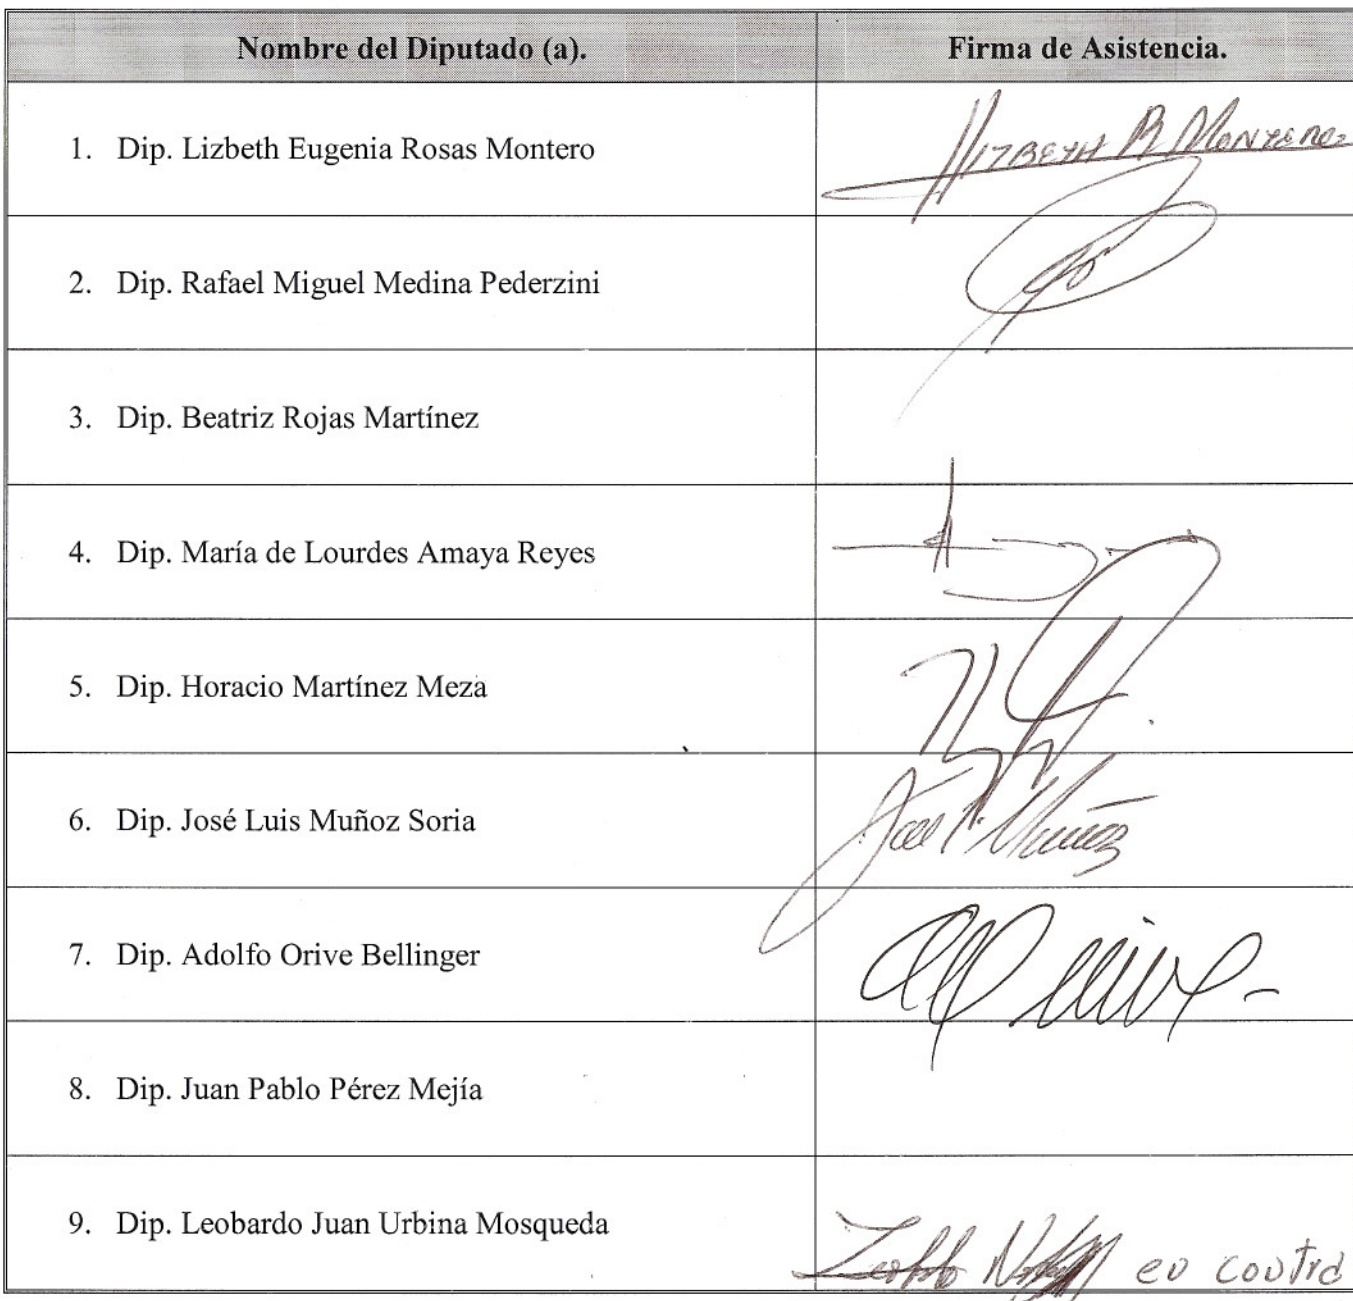 Nombre del Diputado (a). Firma de Asistencia.
1. Dip. Lizbeth Eugenia Rosas Montero LIZBETH R MONTERO
2. Dip. Rafael Miguel Medina Pederzini
3. Dip. Beatriz Rojas Martínez
4. Dip. María de Lourdes Amaya Reyes
5. Dip. Horacio Martínez Meza
6. Dip. José Luis Muñoz Soria José L. Muñoz
7. Dip. Adolfo Orive Bellinger
8. Dip. Juan Pablo Pérez Mejía
9. Dip. Leobardo Juan Urbina Mosqueda en contra